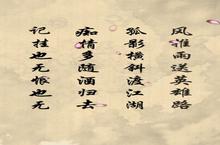 风雅雨送英雄路
孤影横斜渡江湖
痴情多随酒归去
记挂也无恨也无